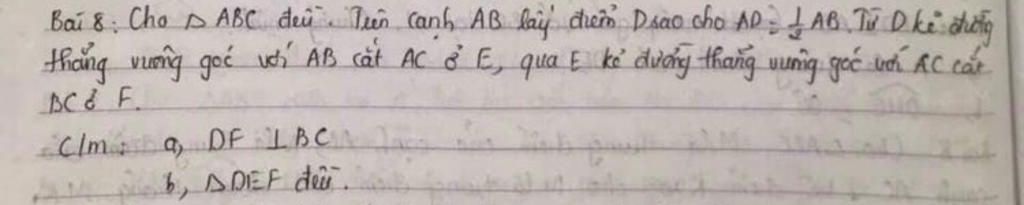 Bài 8: Cho △ ABC đều. Trên cạnh AB lấy điểm D sao cho AD = 1/3 AB. Từ D kẻ đường
thẳng vuông góc với AB cắt AC ở E, qua E kẻ đường thẳng vuông góc với AC cắt
BC ở F.
C/m: a, DF ⊥ BC
b, △DEF đều.